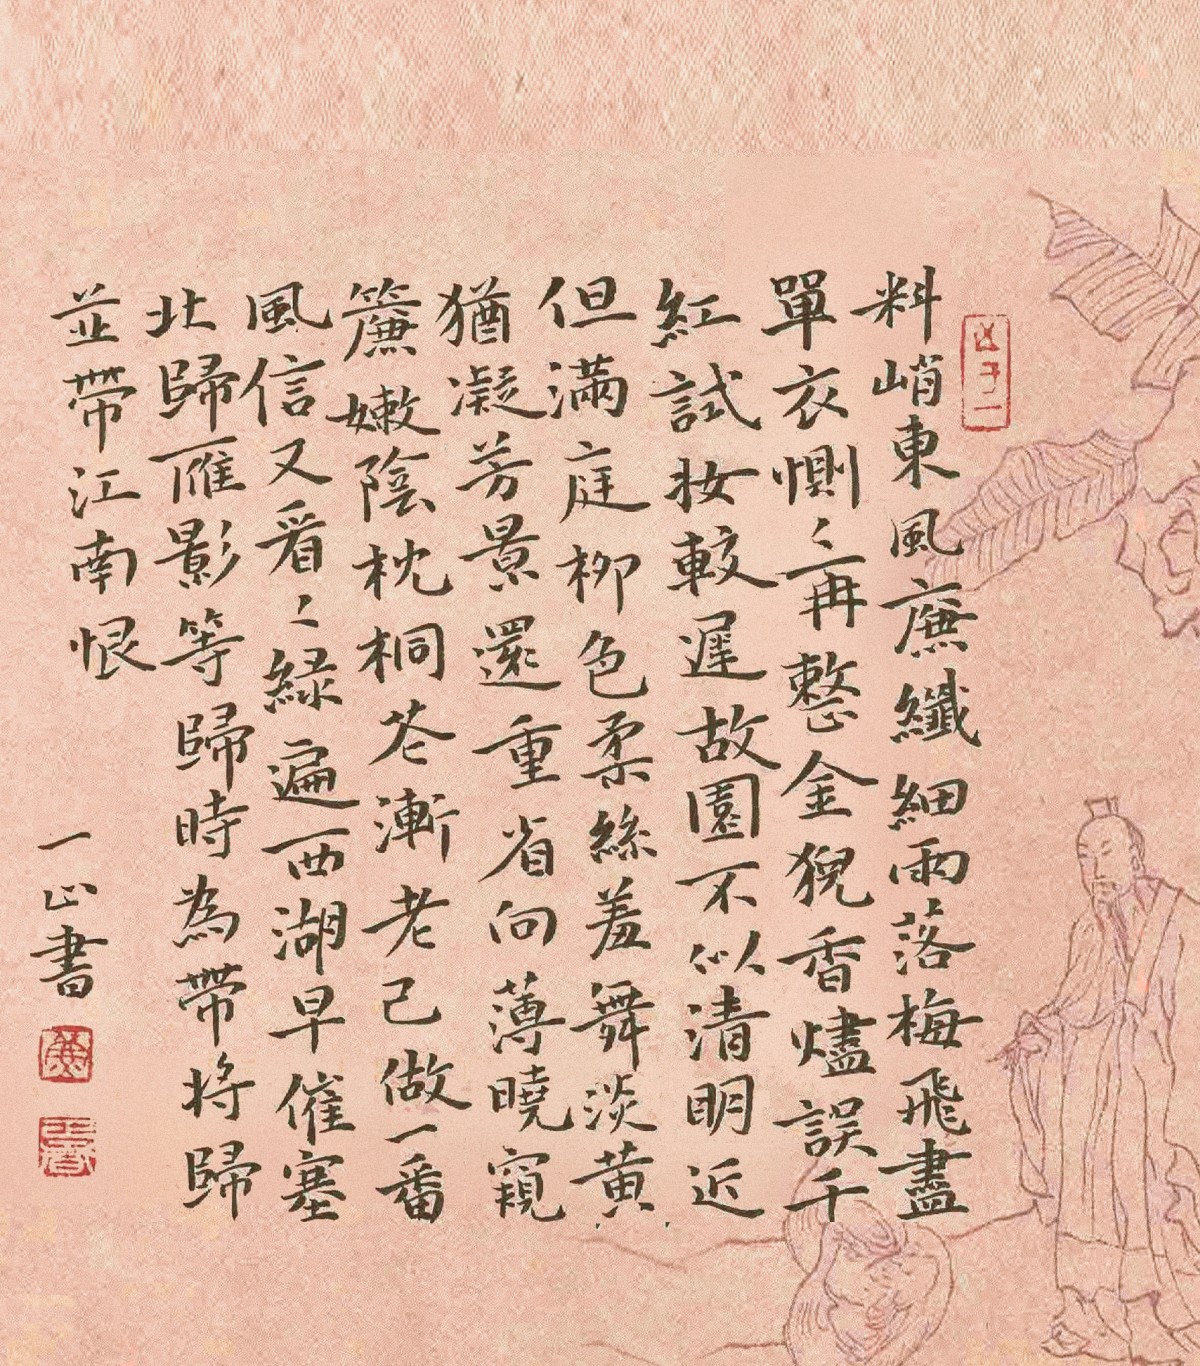 料峭東風廉纖細雨落梅飛盡
單衣惻〻再整金猊香燼誤千
紅試妝較遲故園不似清明近
但滿庭柳色柔絲羞舞淡黃
猶凝芳景還重省向薄曉窺
簾嫩陰枕桐花漸老已做一番
風信又看〻綠遍西湖早催塞
北歸雁影等歸時為帶將歸
並帶江南恨
一正書